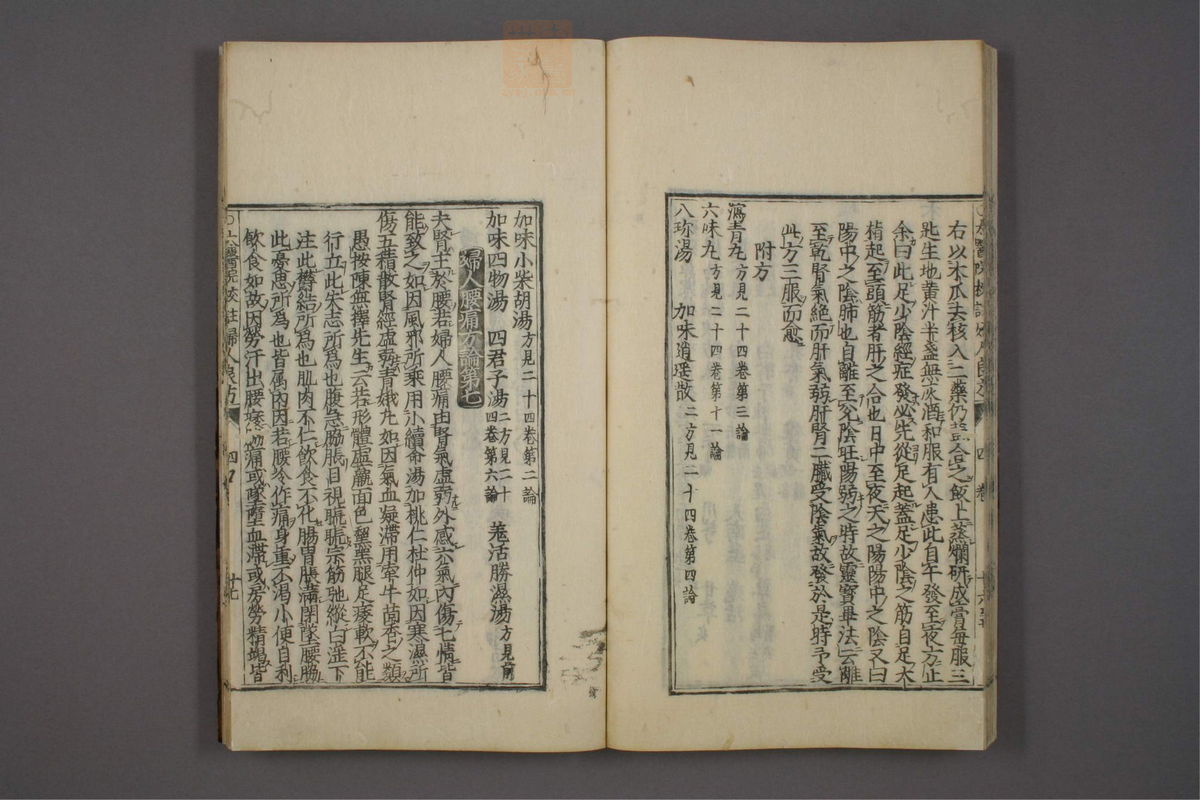 右以木瓜去核入二藥仍蓋合之飯上蒸爛研成膏每服三
匙生地黄汁半盞無灰酒和服有人患此自午發至夜方止
余曰此足少陰經症發必先從足起蓋足少陰之筋自足大
指起至頭筋者肝之合也日中至夜天之陽陽中之陰又曰
陽中之陰肺也自離至兌陰旺陽弱之時故靈寳畢法云離
至乾腎氣絶而肝氣弱肝腎二臟受陰氣故發於是時予受
此方三服而愈
附方
瀉青丸方見二十四卷第三論
六味丸方見二十四卷第十一論
八珍湯 加味逍遥散二方見二十四卷第四論
加味小柴胡湯方見二十四卷第二論
加味四物湯 四君子湯二方見二十四卷第六論 羗活勝濕湯方見前
婦人腰痛方論第七
夫腎主於腰若婦人腰痛由腎氣虚弱外感六氣内傷七情皆
能致之如因風邪所乘用小續命湯加桃仁杜仲如因寒濕所
傷五積散腎經虚弱青娥丸如因氣血凝滯用牽牛茴香之類
愚按陳無擇先生云若形體虚羸面色黧黑腿足痿軟不能
行立此失志所爲也腹急脇脹目視𥆨𥆨宗筋弛縱白淫下
注此欝結所爲也肌肉不仁飲食不化腸胃脹滿閉墜腰脇
此憂思所爲也皆属内因若腰冷作痛身重不渇小便自利
飲食如故因勞汗出腰痿 痛或墜墮血滯或房勞精竭皆